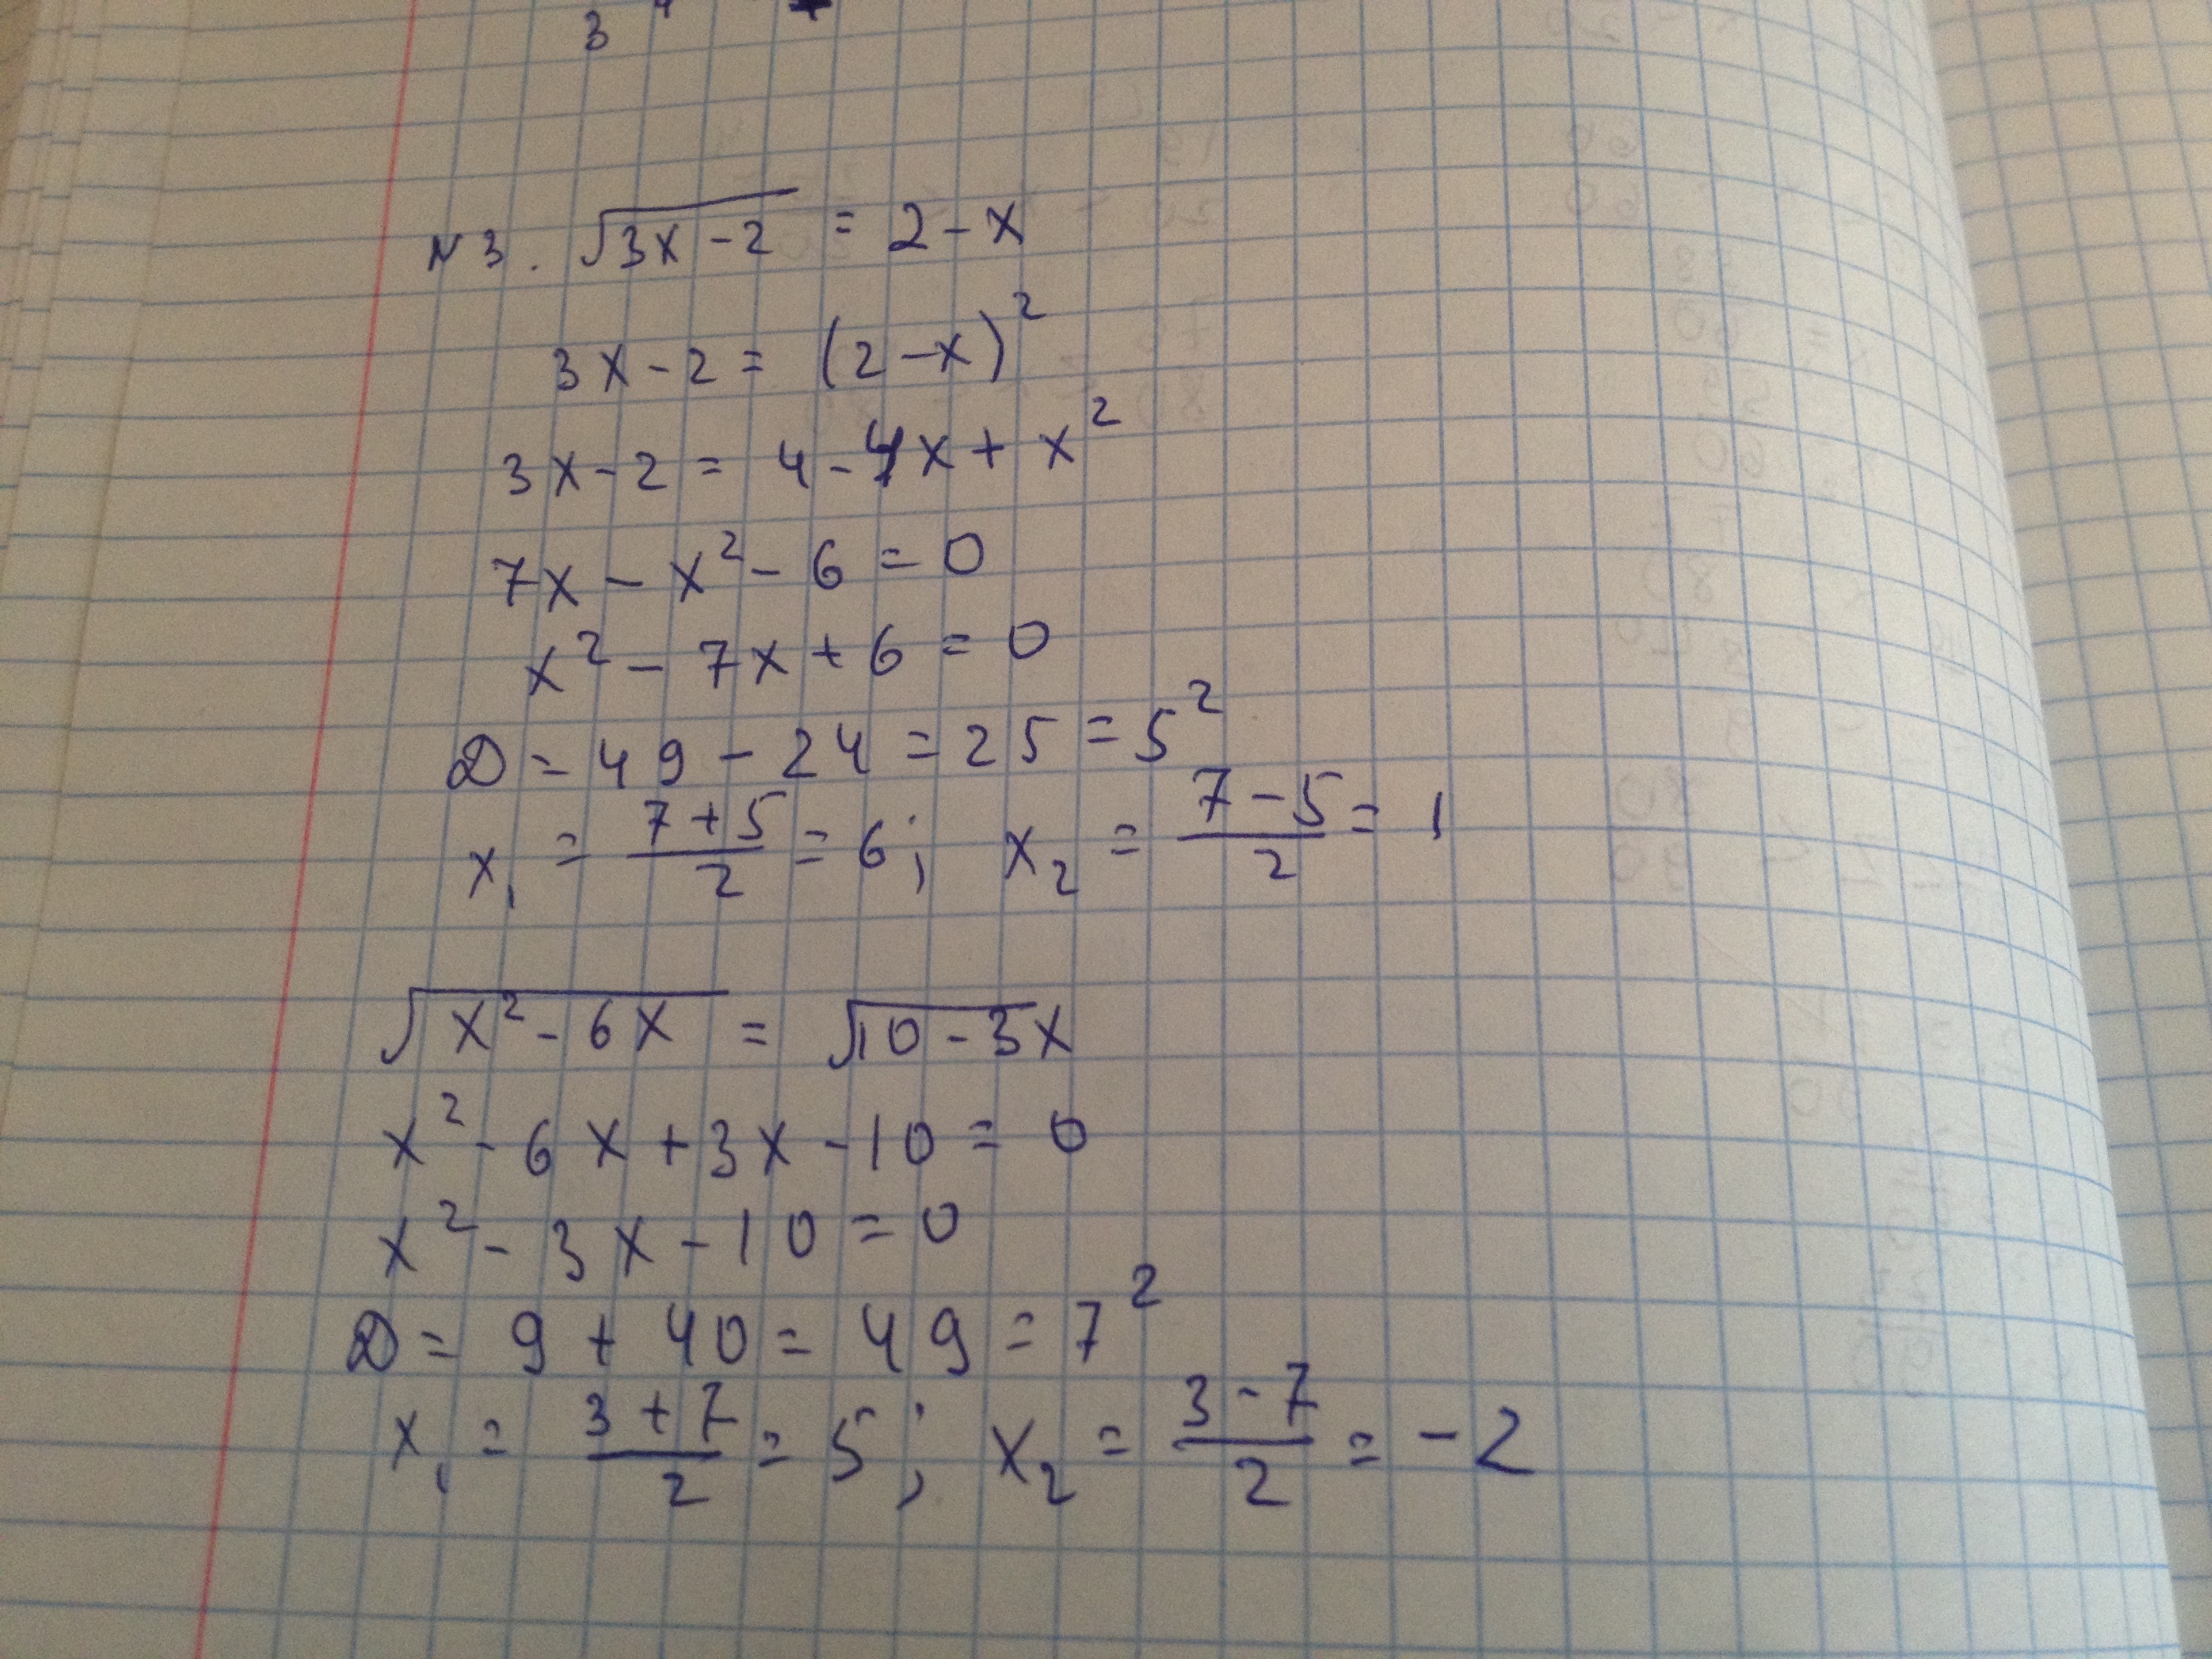 3
N 3. √3x-2 = 2-x
3x-2 = (2-x)²
3x-2 = 4-4x+x²
7x-x²-6=0
x²-7x+6=0
D=49-24=25=5²
x₁ = (7+5)/2 = 6; x₂ = (7-5)/2 = 1
√x²-6x = √10-3x
x²-6x+3x-10=0
x²-3x-10=0
D=9+40=49=7²
x₁ = (3+7)/2 = 5; x₂ = (3-7)/2 = -2